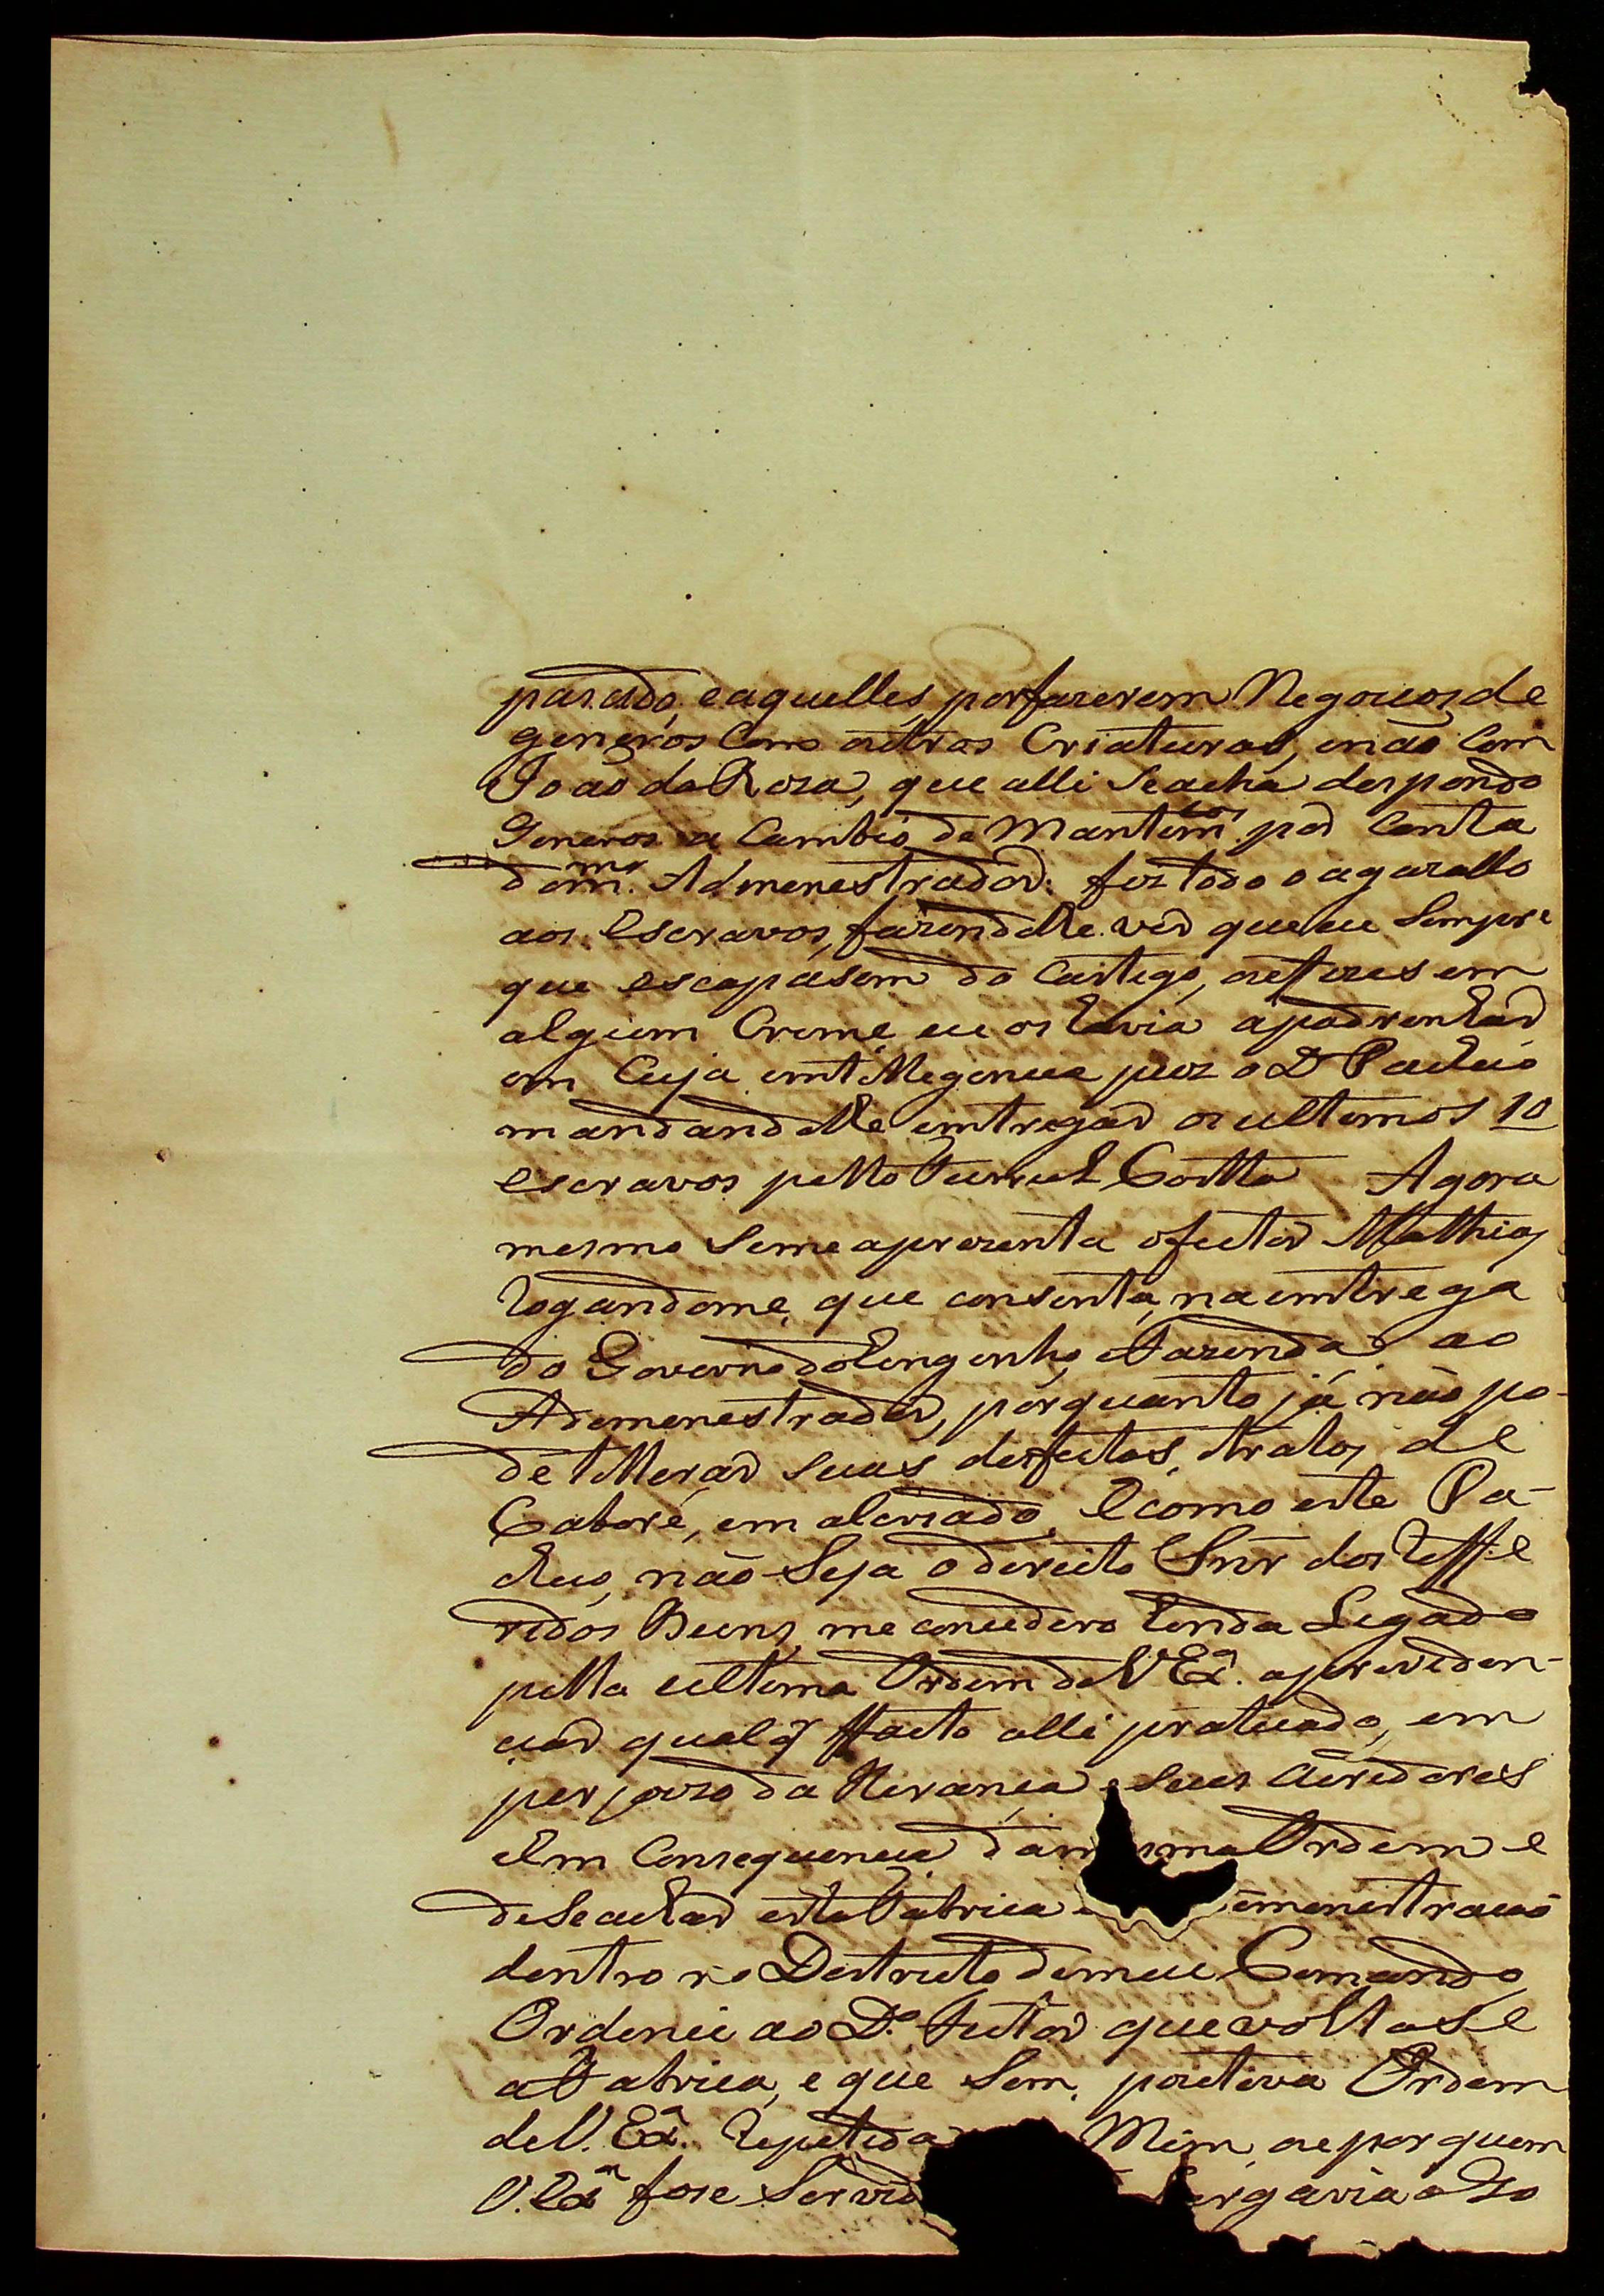 parado, e aquelles, por fazerem Negocios de
generos Como outras Criaturas, enão Com
João da Roza, que alli Seacha despondo
Generos a Cambio de Mantim.tos por Conta
dom.mo Admenestrador: fez todo o agazalho
aos escravos, fazendolhe ver que eu Sempre
que escapasem do Castigo, ouforesem
algum Creme, eu os havia apadrenhar
em Cuja emtellegencia poz o D Pacheco
mandandolhe emtregar os ultemos 10
escravos pello Cotta Agora
mesmo Seme aprezenta ofeitor Mathias
Rogandome, que consenta, naemtrega
do Governo do Engenho, efazenda ao
Ademenestrador, porquanto já não po-
de tollerar Suas desfeitas, etratos de
Caboré, em alcriado, Ecomo este Pa-
checo, não Seja o dereito Snr dos Reffe
ridos Beens, me concidero ainda Legado
pella ultema Ordem de V Exª. apreveden-
ciar qualqr ffacto alli praticado, em
perjuizo da Herança, e Seus Acredores
eEm Consequencia dam ma Ordem e
deSeachar esta Fabrica e emenestracão
dentro no Destricto demeu Comando,
Ordenei ao D.º feitor que voltase
afabrica, e que Sem pozetiva Ordem
de V. Exª. Repetida Mim, ou por quem
V. Exª fose Servid ergaria a So